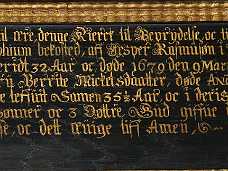 ære denne Kierct til Beprydelse, oc
bekosted, aff Jesper Rasmusøn
32 Aar oc døde 1679 den 9 Mar
Berrite Mickelsdaatter, døde An
lefuit Samen 35½ Aar, oc i deris
Sonner oc 3 Døttre. Gud giffue
oc det Euige liff Amen